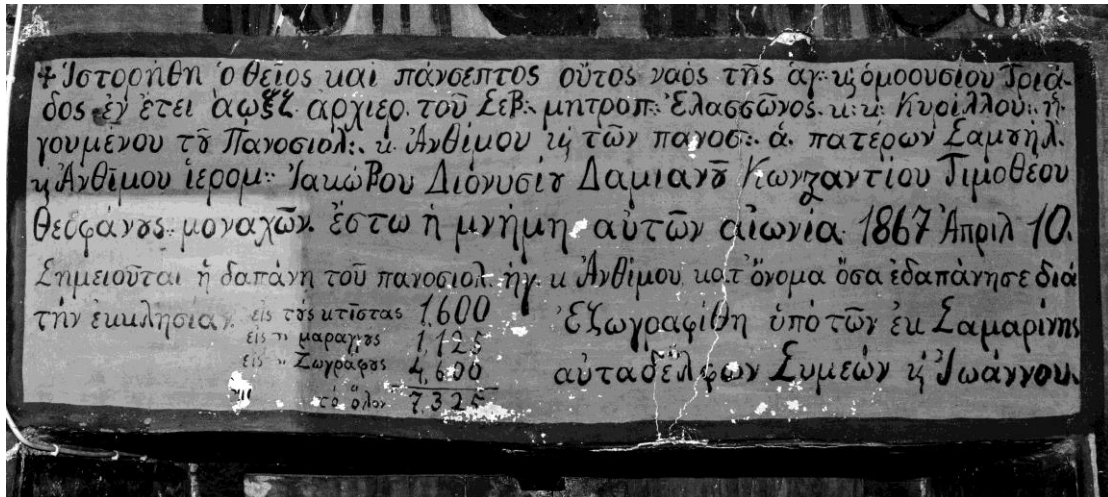 + Ἱστορήθη ὁ θεῖος καὶ πάνσεπτος οὗτος ναὸς τῆς ἁγ: κ̀ ὁμοουσίου Τριά-
δος ἐν ἔτει αωξζ ἀρχιερ. τοῦ Σεβ: μητροπ: Ἐλασσῶνος. κ: κ: Κυρίλλου: ἡ-
γουμένου τȣ͂ Πανοσιολ: κ. Ἀνθίμου κ̀ τῶν πανοσ: ἁ. πατέρων Σαμȣήλ.
κ̀ Ἀνθίμου ἱερομ: Ἰακώβου Διονυσίȣ Δαμιανȣ͂ Κωνϛαντίου Τιμοθέου
Θεοφάνȣς: μοναχῶν. ἔστω ἡ μνήμη αὐτῶν αἰωνία 1867 Ἀπριλ 10.
Σημειοῦται ἡ δαπάνη τοῦ πανοσιολ. ἡγ. κ Ἀνθίμου, κατ' ὄνομα ὅσα ἐδαπάνησε διὰ
τὴν ἐκκλησίαν. εἰς τȣ̀ς κτίστας 1,600
εἰς " μαραγȣς 1,125
εἰς " Ζωγράφȣς 4,600
τὸ ὅλον 7,325
Ἐζωγραφίθη ὑπὸ τῶν ἐκ Σαμαρίνης
αὐταδέλφων Συμεὼν κ̀ Ἰωάννου.